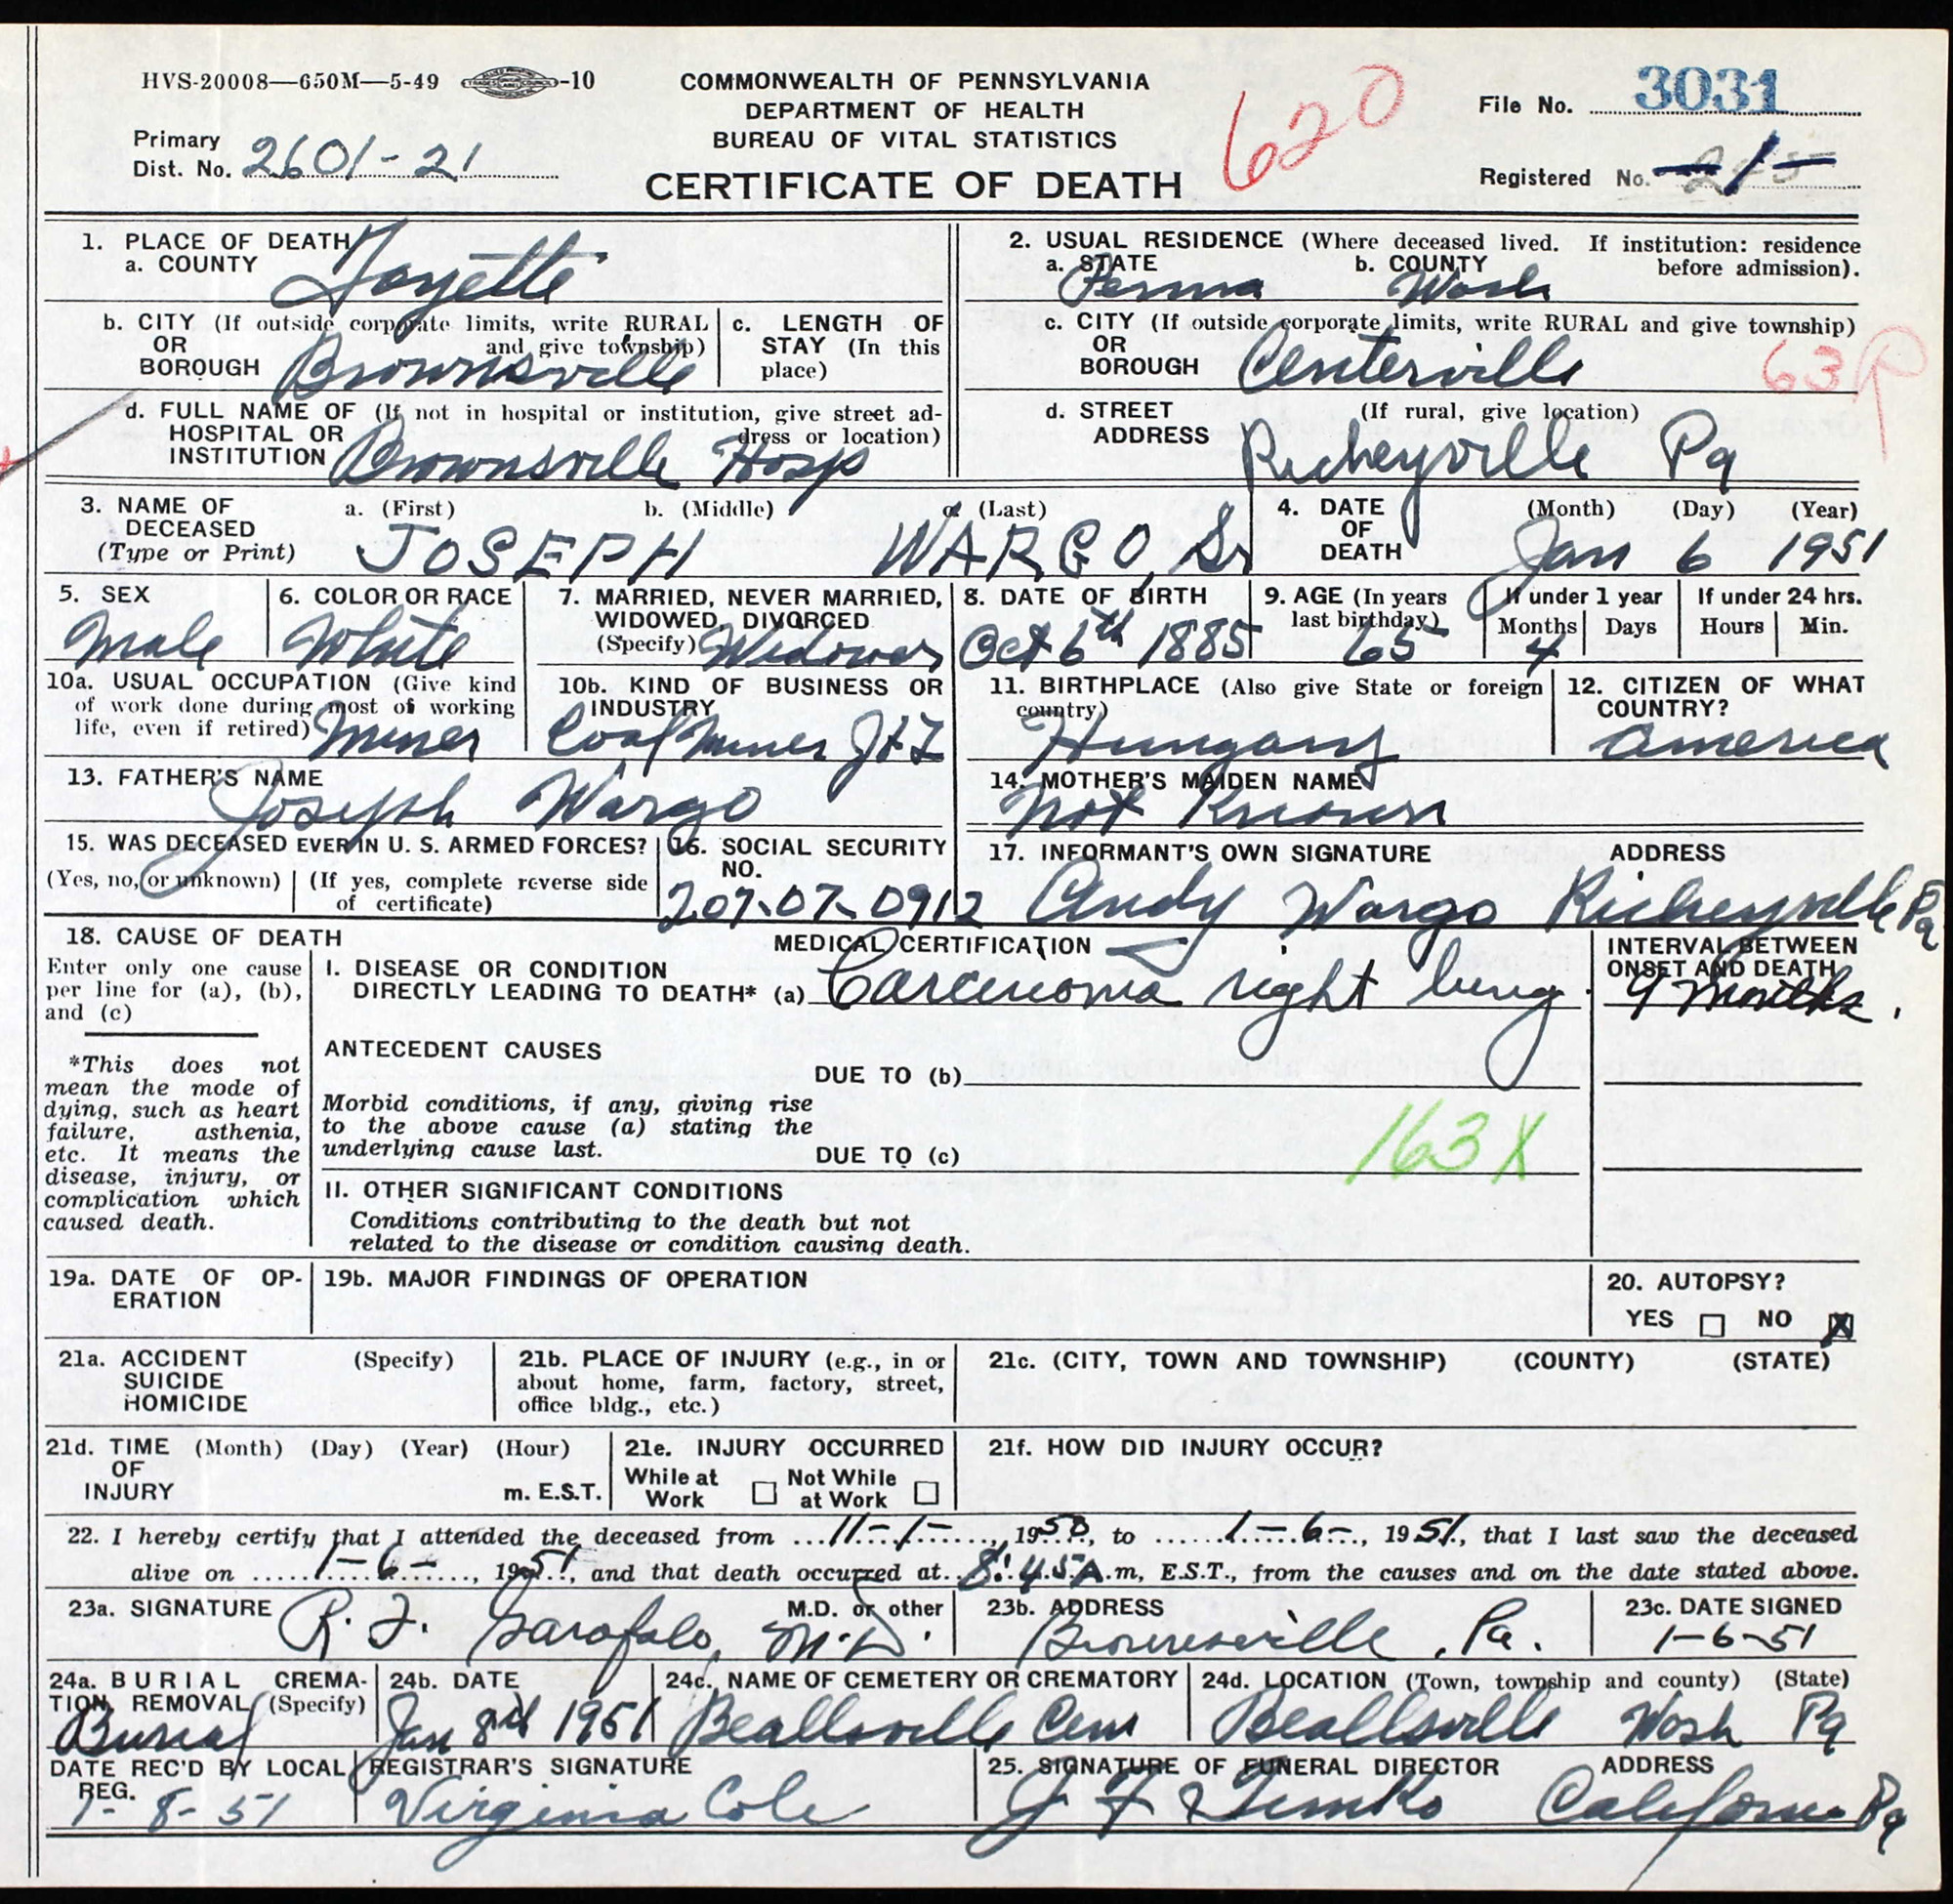 HVS-20008—650M—5-49 -10
COMMONWEALTH OF PENNSYLVANIA
DEPARTMENT OF HEALTH
BUREAU OF VITAL STATISTICS
CERTIFICATE OF DEATH
620
File No. 3031
Primary
Dist. No. 2601-21
Registered No. 1
1. PLACE OF DEATH
a. COUNTY Fayette
2. USUAL RESIDENCE (Where deceased lived. If institution: residence
before admission).
a. STATE b. COUNTY
Penna Wash
b. CITY (If outside corporate limits, write RURAL
OR and give township)
BOROUGH Brownsville
c. LENGTH OF
STAY (In this
place)
c. CITY (If outside corporate limits, write RURAL and give township)
OR
BOROUGH Centerville
63R
d. FULL NAME OF (If not in hospital or institution, give street ad-
HOSPITAL OR dress or location)
INSTITUTION Brownsville Hosp
d. STREET (If rural, give location)
ADDRESS Richeyville Pa
3. NAME OF
DECEASED
(Type or Print)
a. (First) b. (Middle) c. (Last)
JOSEPH WARGO, Sr
4. DATE
OF
DEATH
(Month) (Day) (Year)
Jan 6 1951
5. SEX
Male
6. COLOR OR RACE
White
7. MARRIED, NEVER MARRIED,
WIDOWED, DIVORCED
(Specify) Widower
8. DATE OF BIRTH
Oct 6th 1885
9. AGE (In years
last birthday)
65
If under 1 year
Months Days
4
If under 24 hrs.
Hours Min.
10a. USUAL OCCUPATION (Give kind
of work done during most of working
life, even if retired) Miner
10b. KIND OF BUSINESS OR
INDUSTRY
Coal Miner J+L
11. BIRTHPLACE (Also give State or foreign
country)
Hungary
12. CITIZEN OF WHAT
COUNTRY?
America
13. FATHER'S NAME
Joseph Wargo
14. MOTHER'S MAIDEN NAME
Not Known
15. WAS DECEASED EVER IN U. S. ARMED FORCES?
(Yes, no, or unknown) (If yes, complete reverse side
of certificate)
16. SOCIAL SECURITY
NO.
207-07-0912
17. INFORMANT'S OWN SIGNATURE ADDRESS
Andy Wargo Richeyville Pa
18. CAUSE OF DEATH
Enter only one cause
per line for (a), (b),
and (c)
*This does not
mean the mode of
dying, such as heart
failure, asthenia,
etc. It means the
disease, injury, or
complication which
caused death.
MEDICAL CERTIFICATION
I. DISEASE OR CONDITION
DIRECTLY LEADING TO DEATH* (a) Carcinoma right lung.
INTERVAL BETWEEN
ONSET AND DEATH
9 months.
ANTECEDENT CAUSES
DUE TO (b)
Morbid conditions, if any, giving rise
to the above cause (a) stating the
underlying cause last.
DUE TO (c)
163X
II. OTHER SIGNIFICANT CONDITIONS
Conditions contributing to the death but not
related to the disease or condition causing death.
19a. DATE OF OP-
ERATION
19b. MAJOR FINDINGS OF OPERATION
20. AUTOPSY?
YES NO X
21a. ACCIDENT (Specify)
SUICIDE
HOMICIDE
21b. PLACE OF INJURY (e.g., in or
about home, farm, factory, street,
office bldg., etc.)
21c. (CITY, TOWN AND TOWNSHIP) (COUNTY) (STATE)
21d. TIME (Month) (Day) (Year) (Hour)
OF
INJURY m. E.S.T.
21e. INJURY OCCURRED
While at Not While
Work at Work
21f. HOW DID INJURY OCCUR?
22. I hereby certify that I attended the deceased from 11-1-, 1950, to 1-6-, 1951, that I last saw the deceased
alive on 1-6-, 1951, and that death occurred at 8:45 A.m, E.S.T., from the causes and on the date stated above.
23a. SIGNATURE M.D. or other
R. F. Garofolo, M.D.
23b. ADDRESS
Brownsville, Pa.
23c. DATE SIGNED
1-6-51
24a. BURIAL CREMA-
TION REMOVAL (Specify)
Burial
24b. DATE
Jan 8th 1951
24c. NAME OF CEMETERY OR CREMATORY
Beallsville Cem
24d. LOCATION (Town, township and county) (State)
Beallsville Wash Pa
DATE REC'D BY LOCAL
REG.
1-8-51
REGISTRAR'S SIGNATURE
Virginia Cole
25. SIGNATURE OF FUNERAL DIRECTOR ADDRESS
California Pa